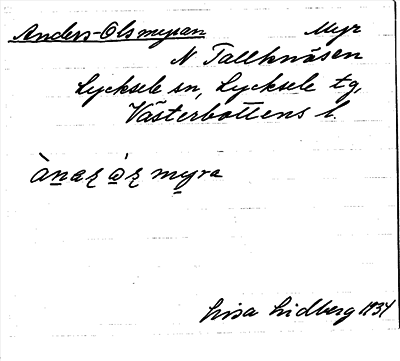 Anders-Olsmyran Myr
N Tallknösen
Lycksele sn, Lycksele tg,
Västerbottens l.
myra
Lisa Lidberg 1934